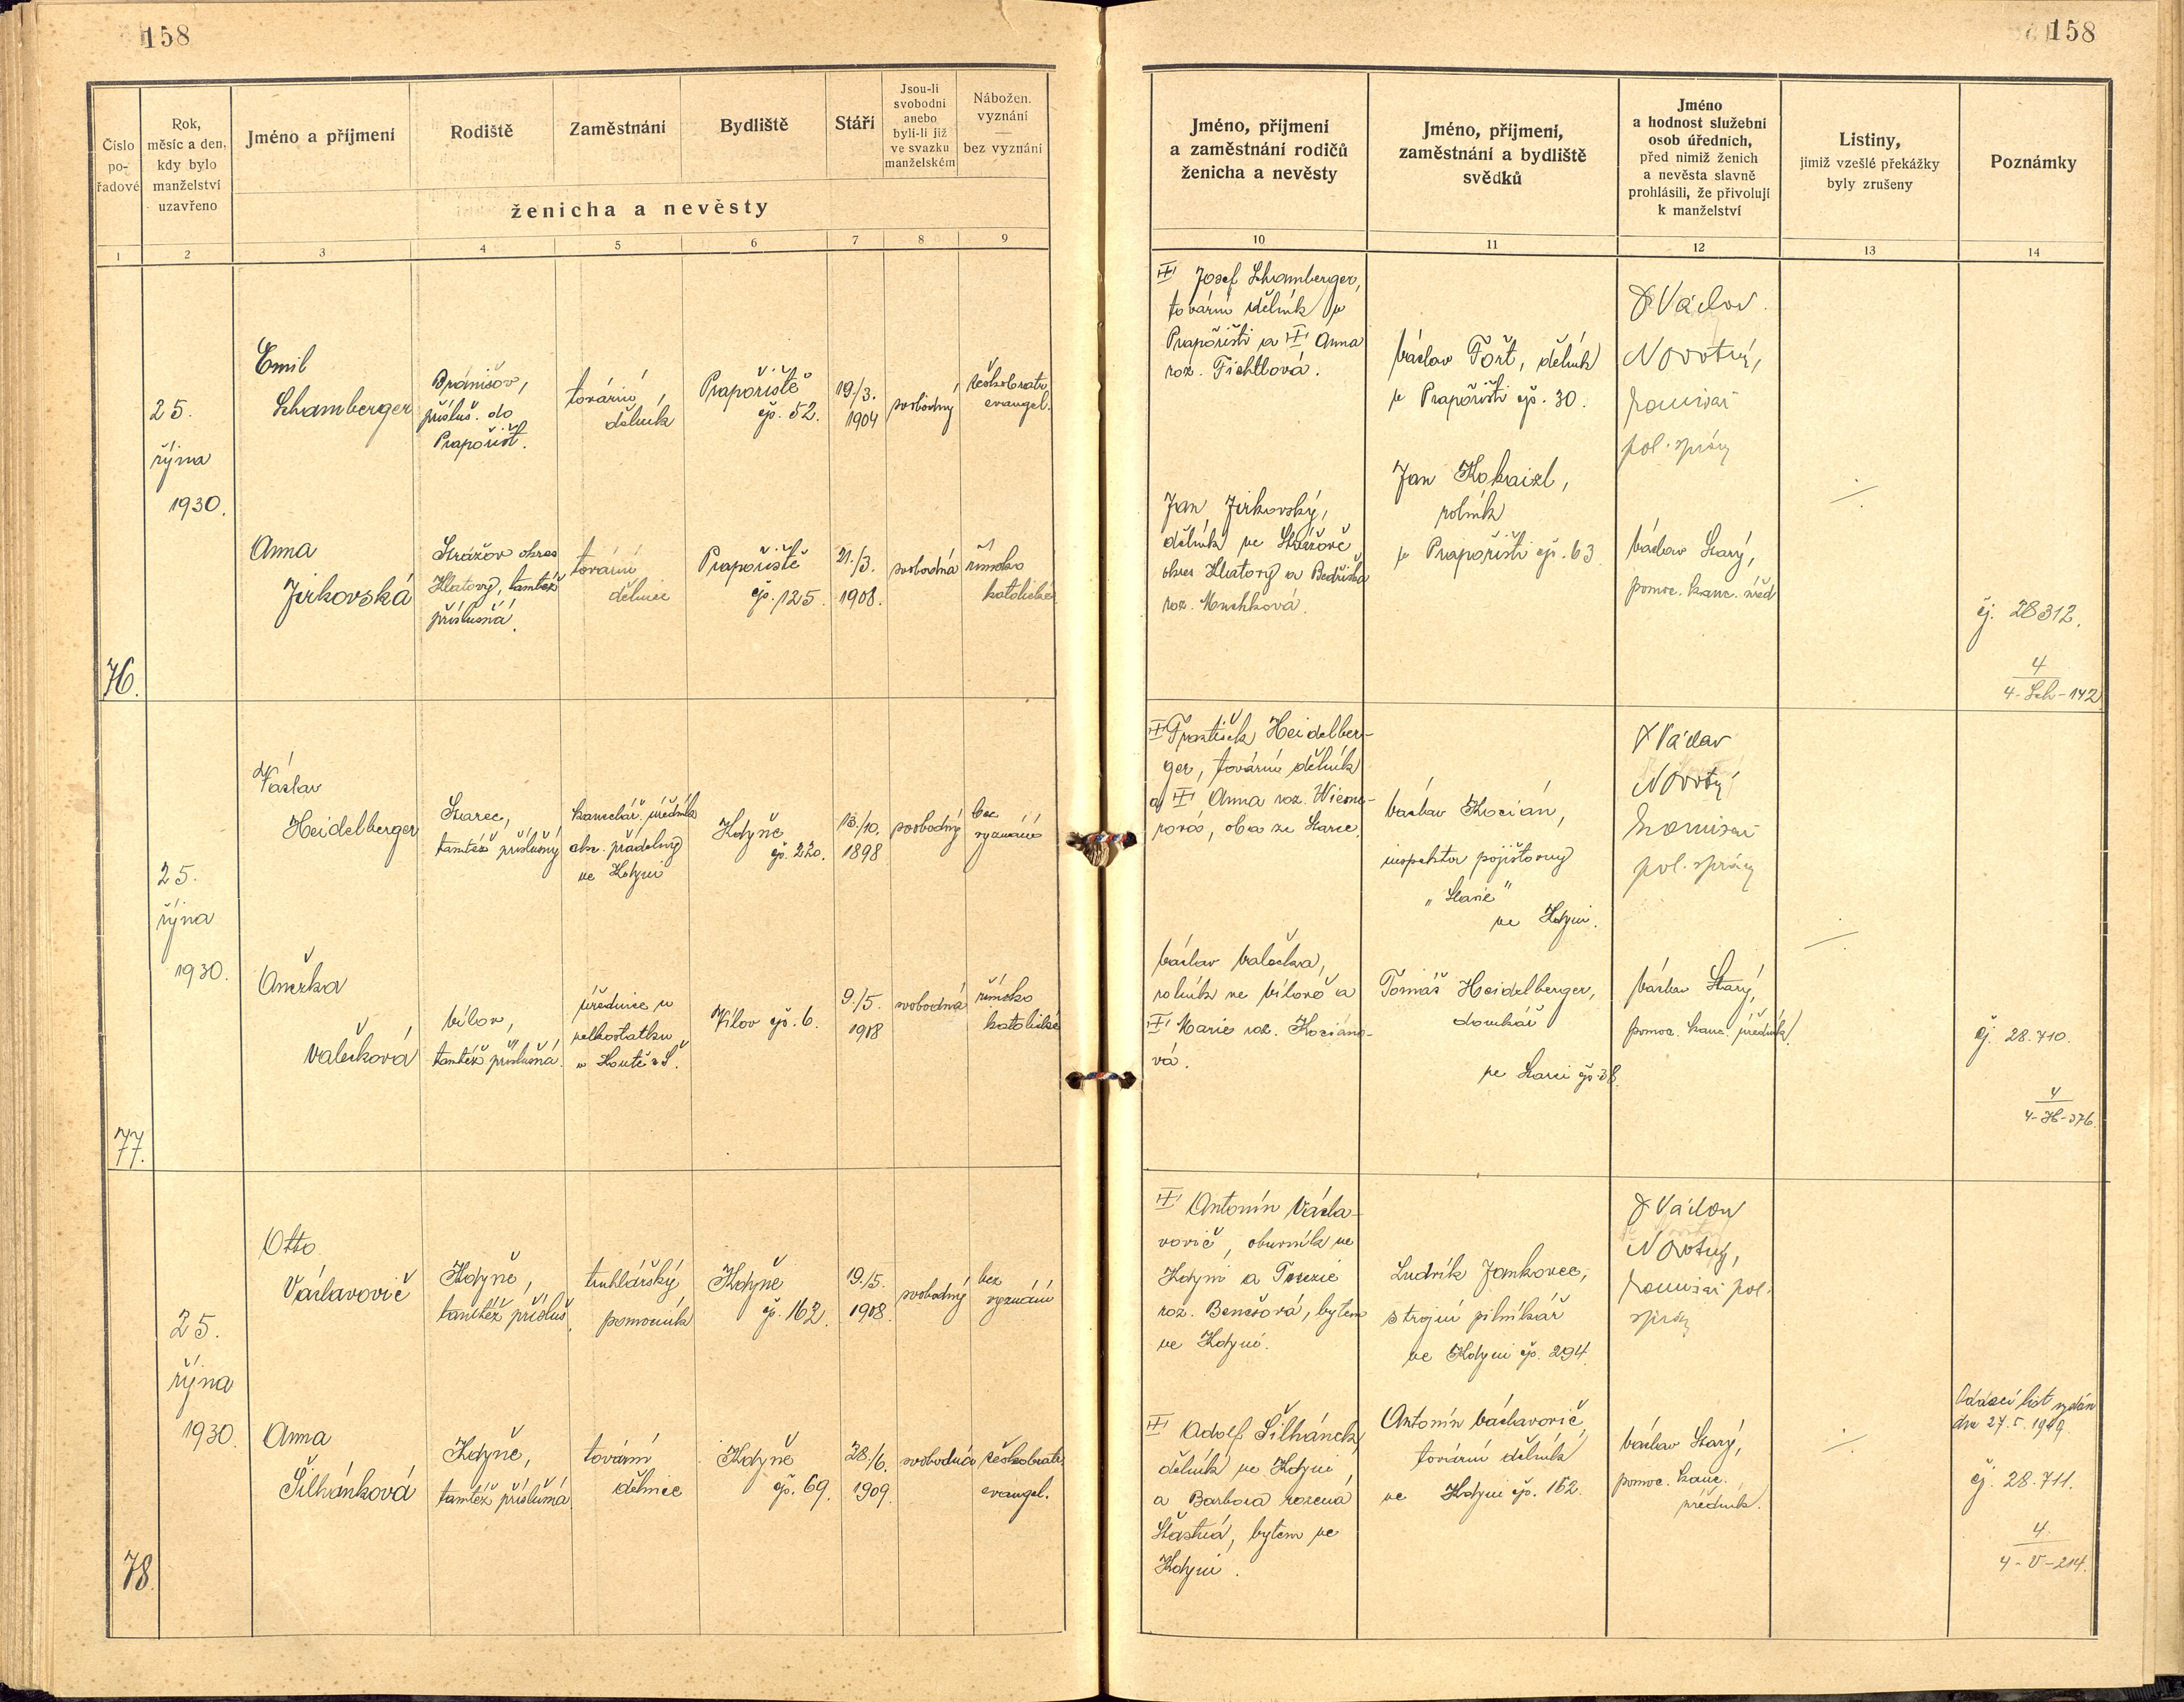 158
158
Číslo
po-
řadové
Rok,
měsíc a den,
kdy bylo
manželství
uzavřeno
Jméno a příjmení
Rodiště
Zaměstnání
Bydliště
Stáří
Jsou-li
svobodni
anebo
byli-li již
ve svazku
manželském
Nábožen.
vyznání
—
bez vyznání
ženicha a nevěsty
Jméno, příjmení
a zaměstnání rodičů
ženicha a nevěsty
Jméno, příjmení,
zaměstnání a bydliště
svědků
Jméno
a hodnost služební
osob úředních,
před nimiž ženich
a nevěsta slavně
prohlásili, že přivolují
k manželství
Listiny,
jimiž vzešlé překážky
byly zrušeny
Poznámky
1 2 3 4 5 6 7 8 9 10 11 12 13 14
76.
25.
října
1930.
Emil
Schamberger
Branišov,
přísluš. do
Prapořišť.
tovární
dělník
Prapořiště
čp. 52.
19/3.
1904
svobodný
českobratr.
evangel.
Josef Schramberger,
tovární dělník v
Prapořišti a Anna
roz. Fichtlová.
Václav Fořt, dělník
v Prapořišti čp. 30.
Václav
Novotný,
komisař
pol. správy
Anna
Jirkovská
Strážov okres
Klatovy, tamtéž
příslušná.
tovární
dělnice
Prapořiště
čp. 125.
21./3.
1908.
svobodná
římsko
katolické
Jan Jirkovský,
dělník ve Strážově
okres Klatovy a Bedřiška
roz.
Jan Kokaizl,
rolník
v Prapořišti čp. 63
Václav Starý,
pomoc. kanc. úřed
čj. 28312.
4
4-Sch-142
77.
25.
října
1930.
Václav
Heidelberger
Starec,
tamtéž příslušný
kancelář. úředník
přádelny
ve Kdyni
Kdyně
čp. 220.
13./10.
1898
svobodný
bez
vyznání
František Heidelber-
ger, tovární dělník
a Anna roz.
oba ze Starce.
Václav Kocián,
inspektor pojišťovny
„Slavie"
ve Kdyni.
Václav
Novotný
komisař
pol. správy
Anežka
Valečková
Vílov,
tamtéž příslušná.
úřednice u
velkostatku
v Koutě n. Š.
Vílov čp. 6.
9./5.
1908
svobodná
římsko
katolické
Václav Valečka,
rolník ve Vílově a
Marie roz. Kociáno-
vá.
Tomáš Heidelberger,
domkář
ve Starci čp. 38.
Václav Starý,
pomoc. kanc. úředník
čj. 28.710.
4
4-H-376.
78.
25.
října
1930.
Otto
Václavovič
Kdyně,
tamtéž přísluš.
truhlářský
pomocník
Kdyně
čp. 162.
19./5.
1908.
svobodný
bez
vyznání
Antonín Václa-
vovič, obuvník ve
Kdyni a Terezie
roz. Benešová, bytem
ve Kdyni.
Ludvík Jankovec,
strojní pilníkář
ve Kdyni čp. 294.
Václav
Novotný,
komisař pol.
správy
Anna
Šilhánková
Kdyně,
tamtéž příslušná
tovární
dělnice
Kdyně
čp. 69.
28./6.
1909.
svobodná
českobratr.
evangel.
Adolf Šilhánek,
dělník ve Kdyni
a Barbora rozená
Šťastná, bytem ve
Kdyni.
Antonín Václavovič,
tovární dělník
ve Kdyni čp. 162.
Václav Starý,
pomoc. kanc.
úředník.
Oddací list vydán
dne 27.5. 1949.
čj. 28.711.
4.
4-V-214.